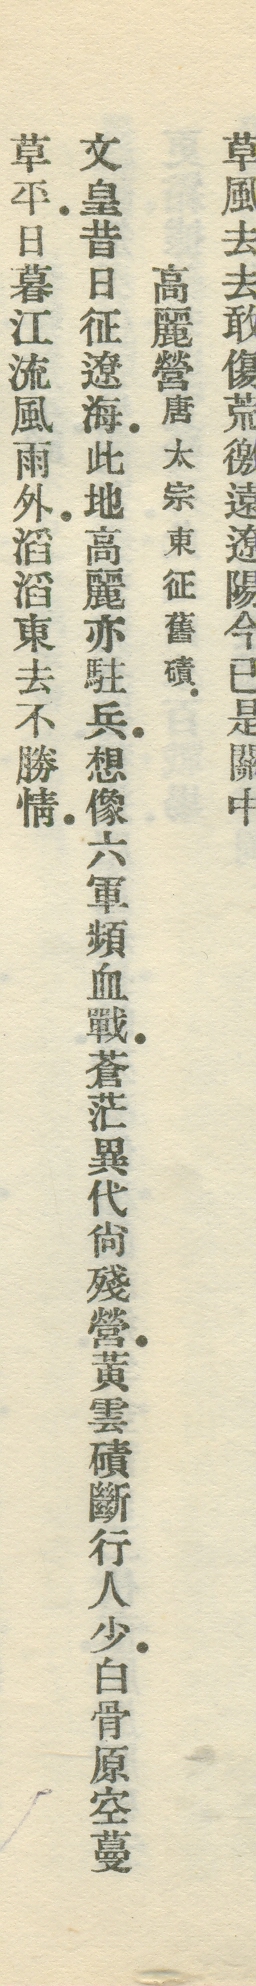 草風去去敢傷荒徼遠遼陽今已是關中
高麗營唐太宗東征舊磧.
文皇昔日征遼海.此地高麗亦駐兵.想像六軍頻血戰.蒼茫異代尙殘營.黃雲磧斷行人少.白骨原空蔓
草平.日暮江流風雨外.滔滔東去不勝情.